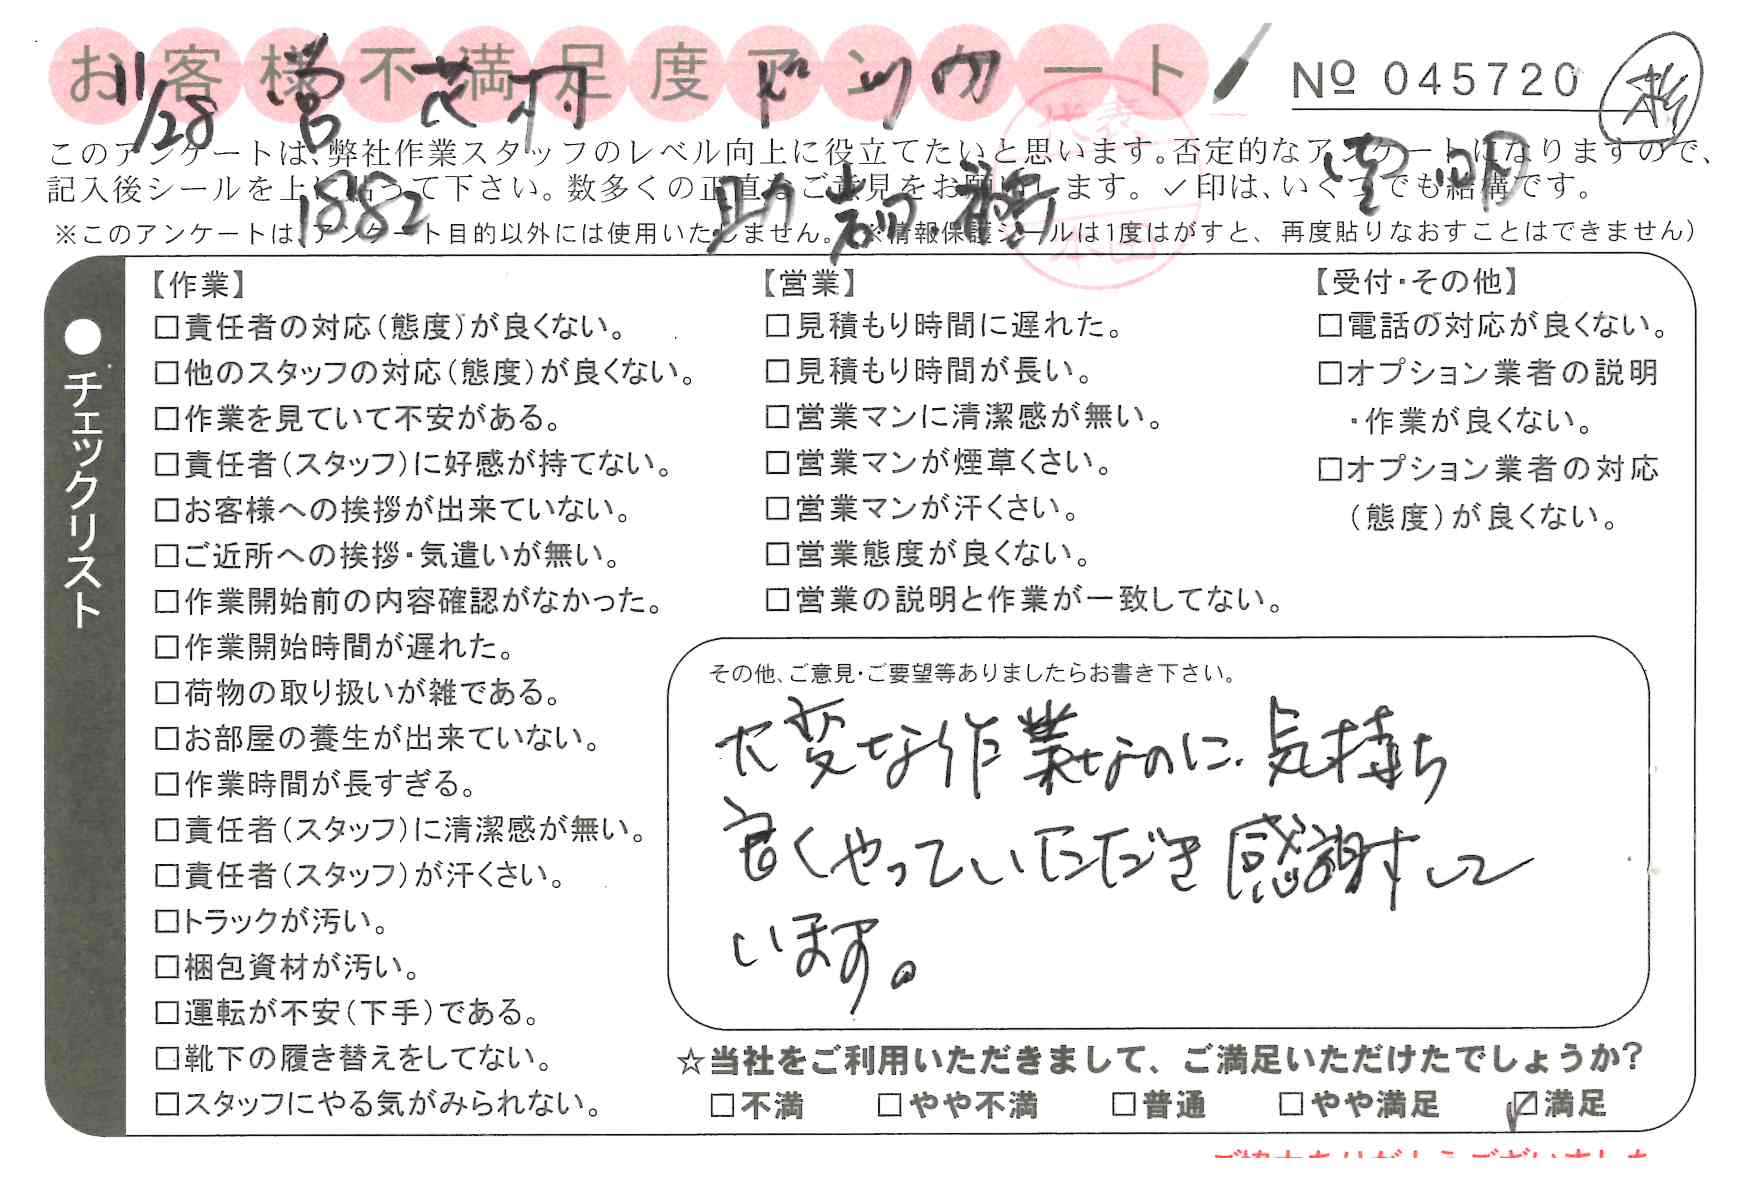 お客様不満足度アンケート
№ 045720
11/28 営 花村
1882
代表
本田
このアンケートは、弊社作業スタッフのレベル向上に役立てたいと思います。否定的なアンケートになりますので、
記入後シールを上に貼って下さい。数多くの正直なご意見をお願いします。✓印は、いくつでも結構です。
※このアンケートは、アンケート目的以外には使用いたしません。 ※情報保護シールは1度はがすと、再度貼りなおすことはできません)
●チェックリスト
【作業】
□責任者の対応(態度)が良くない。
□他のスタッフの対応(態度)が良くない。
□作業を見ていて不安がある。
□責任者(スタッフ)に好感が持てない。
□お客様への挨拶が出来ていない。
□ご近所への挨拶・気遣いが無い。
□作業開始前の内容確認がなかった。
□作業開始時間が遅れた。
□荷物の取り扱いが雑である。
□お部屋の養生が出来ていない。
□作業時間が長すぎる。
□責任者(スタッフ)に清潔感が無い。
□責任者(スタッフ)が汗くさい。
□トラックが汚い。
□梱包資材が汚い。
□運転が不安(下手)である。
□靴下の履き替えをしてない。
□スタッフにやる気がみられない。
【営業】
□見積もり時間に遅れた。
□見積もり時間が長い。
□営業マンに清潔感が無い。
□営業マンが煙草くさい。
□営業マンが汗くさい。
□営業態度が良くない。
□営業の説明と作業が一致してない。
【受付・その他】
□電話の対応が良くない。
□オプション業者の説明
・作業が良くない。
□オプション業者の対応
(態度)が良くない。
その他、ご意見・ご要望等ありましたらお書き下さい。
大変な作業なのに、気持ち
良くやっていただき感謝して
います。
☆当社をご利用いただきまして、ご満足いただけたでしょうか?
□不満 □やや不満 □普通 □やや満足 ☑満足